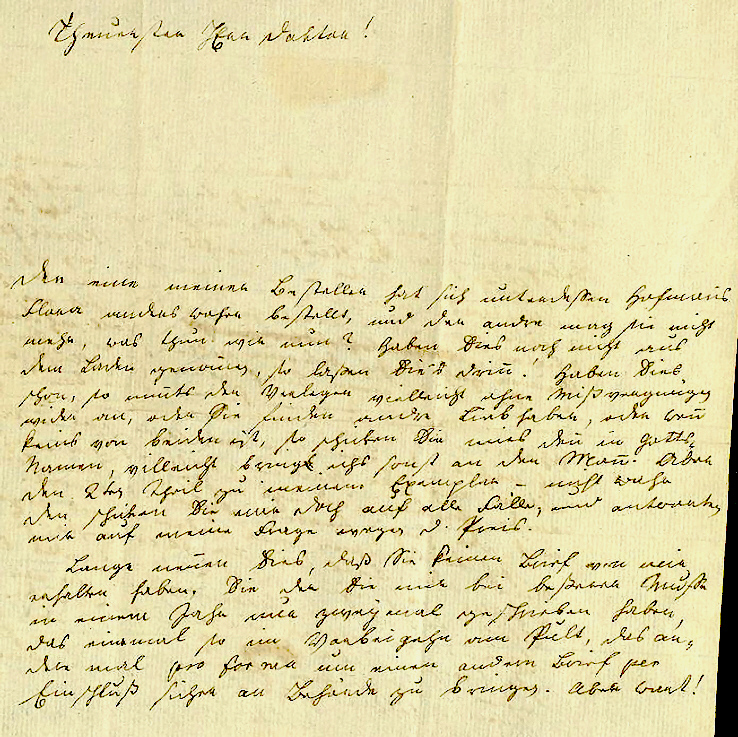 Theuerster Herr Doktor!
Der eine meiner Besteller hat sich unterdessen Hofmanns
Flora anders woher bestellt, und der andre mag sie nicht
mehr, was thun wir nun? Haben Sies noch nicht aus
dem Laden genom̄en, so laßen Sie's drin! Haben Sies
schon, so nimts der Verleger vielleicht ohne Mißvergnügen
wider an, oder Sie finden andre Liebhaber, oder wen̄
keins von beiden ist, so schicken Sie mirs den̄ in Gotts
Namen, villeicht bringe ichs sonst an den Man̄. Aber
den 2ten Theil zu meinem Exemplar – nicht wahr
den schicken Sie mir doch auf alle Fälle, und antworten
mir auf meine Frage wegen d. Preis.
Lange nen̄en Sies, daß Sie keinen Brief von mir
erhalten haben, Sie der Sie mir bei beßerer Muße
in einem Jahr nur zweymal geschrieben haben,
das einemal so im Vorbeigehn am Pult, das an-
dere mal pro forma um einen andern Brief per
Einschluß sicher an Behörde zu bringen. Aber wart!